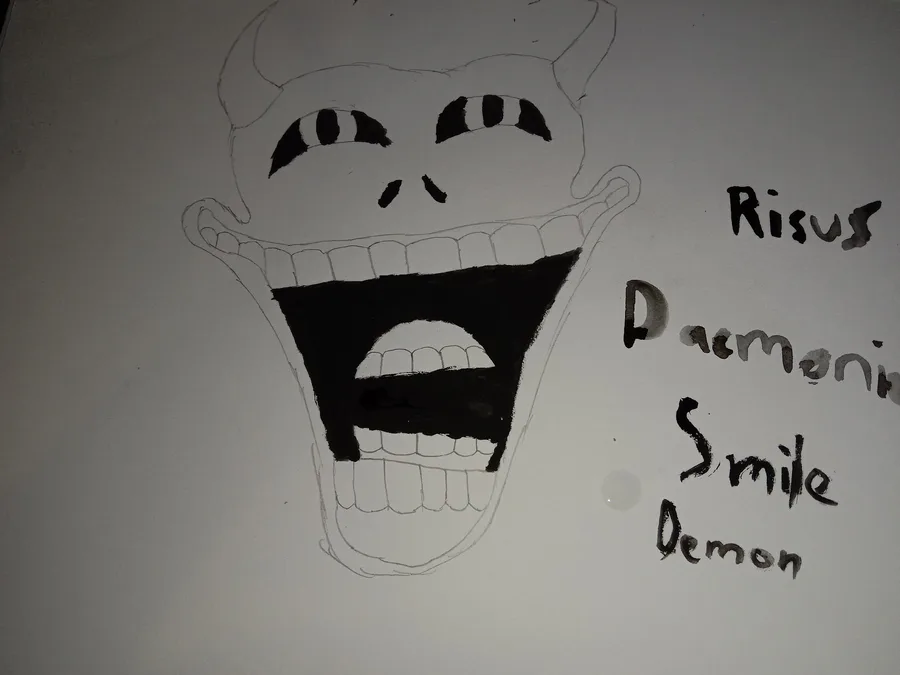 Risus
Daemoni
Smile
Demon